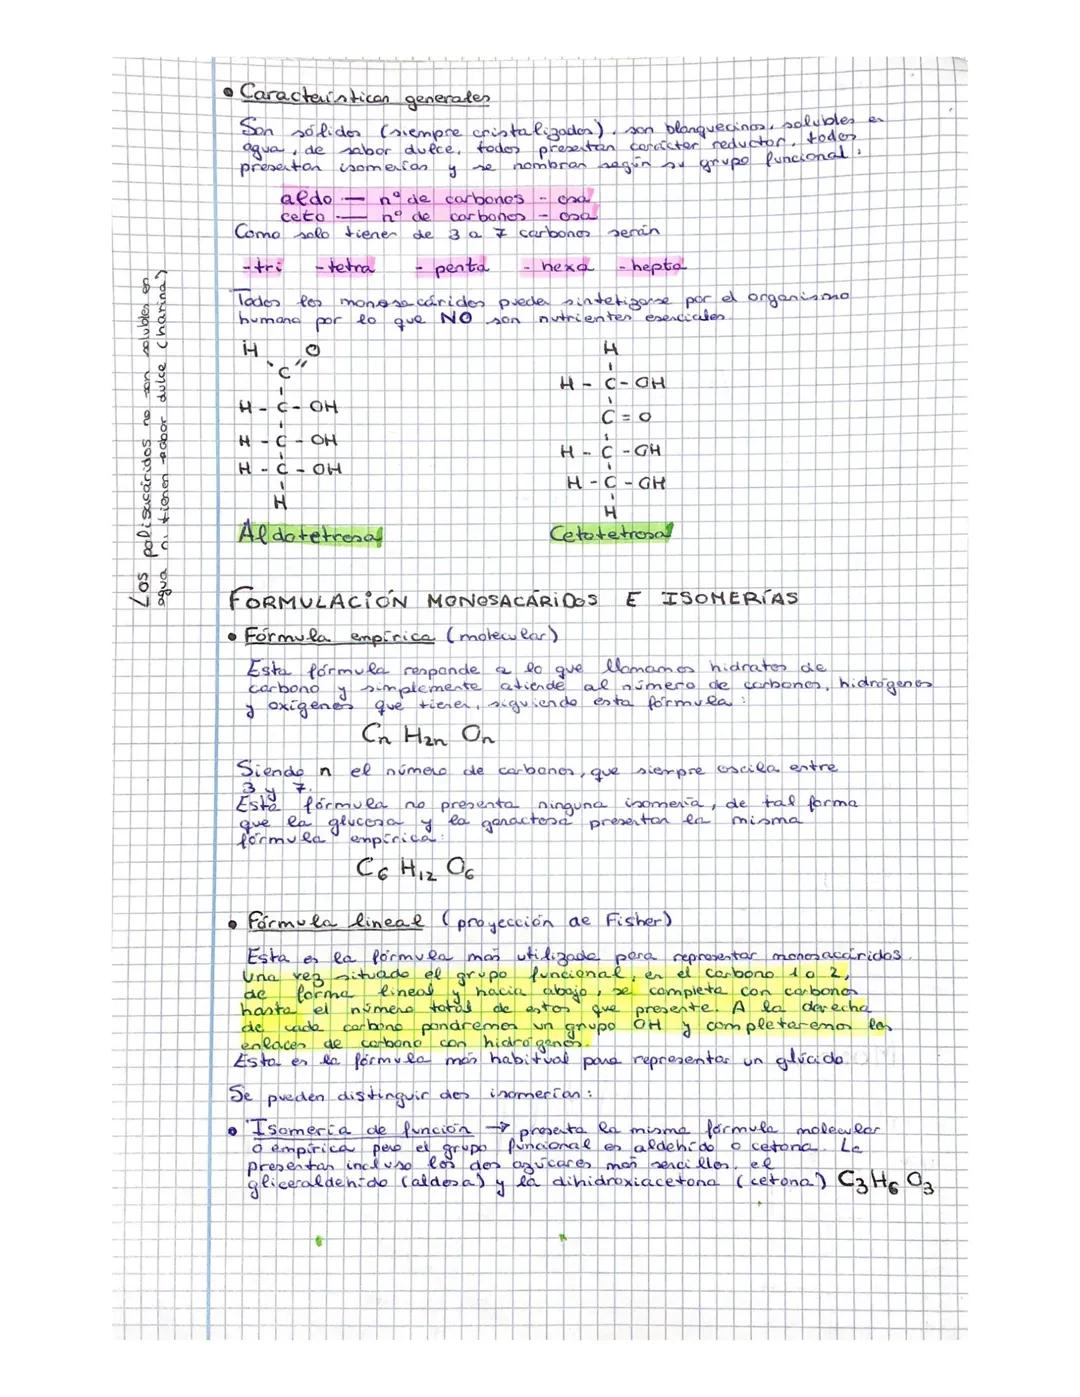 • Características generales
Son sólidos (siempre cristalizados), son blanquecinos, solubles en
agua, de sabor dulce, todos presentan carácter reductor, todos
presentan isomerías y se nombran según su grupo funcional:
aldo — nº de carbonos - osa
ceto — nº de carbonos - osa
Como solo tienen de 3 a 7 carbonos serán
-tri -tetra - penta - hexa - hepta
Todos los monosacáridos puede sintetizarse por el organismo
humano por lo que NO son nutrientes esenciales
H O
C
H - C - OH
H - C - OH
H - C - OH
H
Aldotetrosa
H
H - C - OH
C = O
H - C - OH
H - C - OH
H
Cetotetrosa
Los polisacáridos no son solubles en
agua ni tienen sabor dulce (harina)
FORMULACIÓN MONOSACÁRIDOS E ISOMERÍAS
• Fórmula empírica (molecular)
Esta fórmula responde a lo que llamamos hidratos de
carbono y simplemente atiende al número de carbonos, hidrógenos
y oxígenos que tienen, siguiendo esta fórmula:
Cn H2n On
Siendo n el número de carbonos, que siempre oscila entre
3 y 7.
Esta fórmula no presenta ninguna isomería, de tal forma
que la glucosa y la ganactosa presentan la misma
fórmula empírica:
C6 H12 O6
• Fórmula lineal (proyección de Fisher)
Esta es la fórmula más utilizada para representar monosacáridos.
Una vez situado el grupo funcional, en el carbono 1 o 2,
de forma lineal y hacia abajo, se completa con carbonos
hasta el número total de estos que presente. A la derecha
de cada carbono pondremos un grupo OH y completaremos los
enlaces de carbono con hidrógenos.
Esta es la fórmula más habitual para representar un glúcido
Se pueden distinguir dos isomerías:
• Isomería de función → presenta la misma fórmula molecular
o empírica pero el grupo funcional es aldehído o cetona. La
presentan incluso los dos azúcares más sencillos, el
gliceraldehído (aldosa) y la dihidroxiacetona (cetona) C3 H6 O3